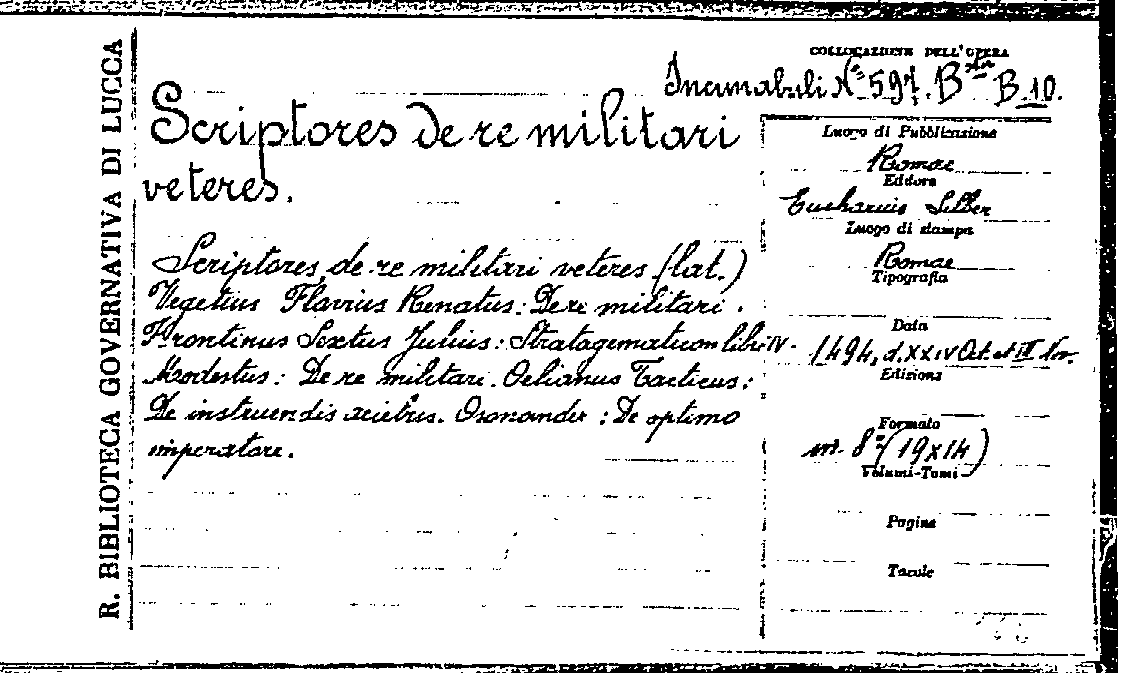 R. BIBLIOTECA GOVERNATIVA DI LUCCA
COLLOCAZIONE DELL'OPERA
Incunabuli N° 597. B B.10.
Scriptores de re militari
veteres.
Scriptores de re militari veteres (lat.)
Vegetius Flavius Renatus: De re militari.
Frontinus Sextus Julius: Stratagematicon libri IV.
Modestus: De re militari. Oelianus Tacticus:
De instruendis aciebus. Osonander: De optimo
imperatore.
Luogo di Pubblicazione
Romae
Editore
Eucharius Silber
Luogo di stampa
Romae
Tipografia
Data
1494, d. XXIV Oct. et III Nov.
Edizione
Formato
in 8° (19x14)
Volumi-Tomi
Pagine
Tavole